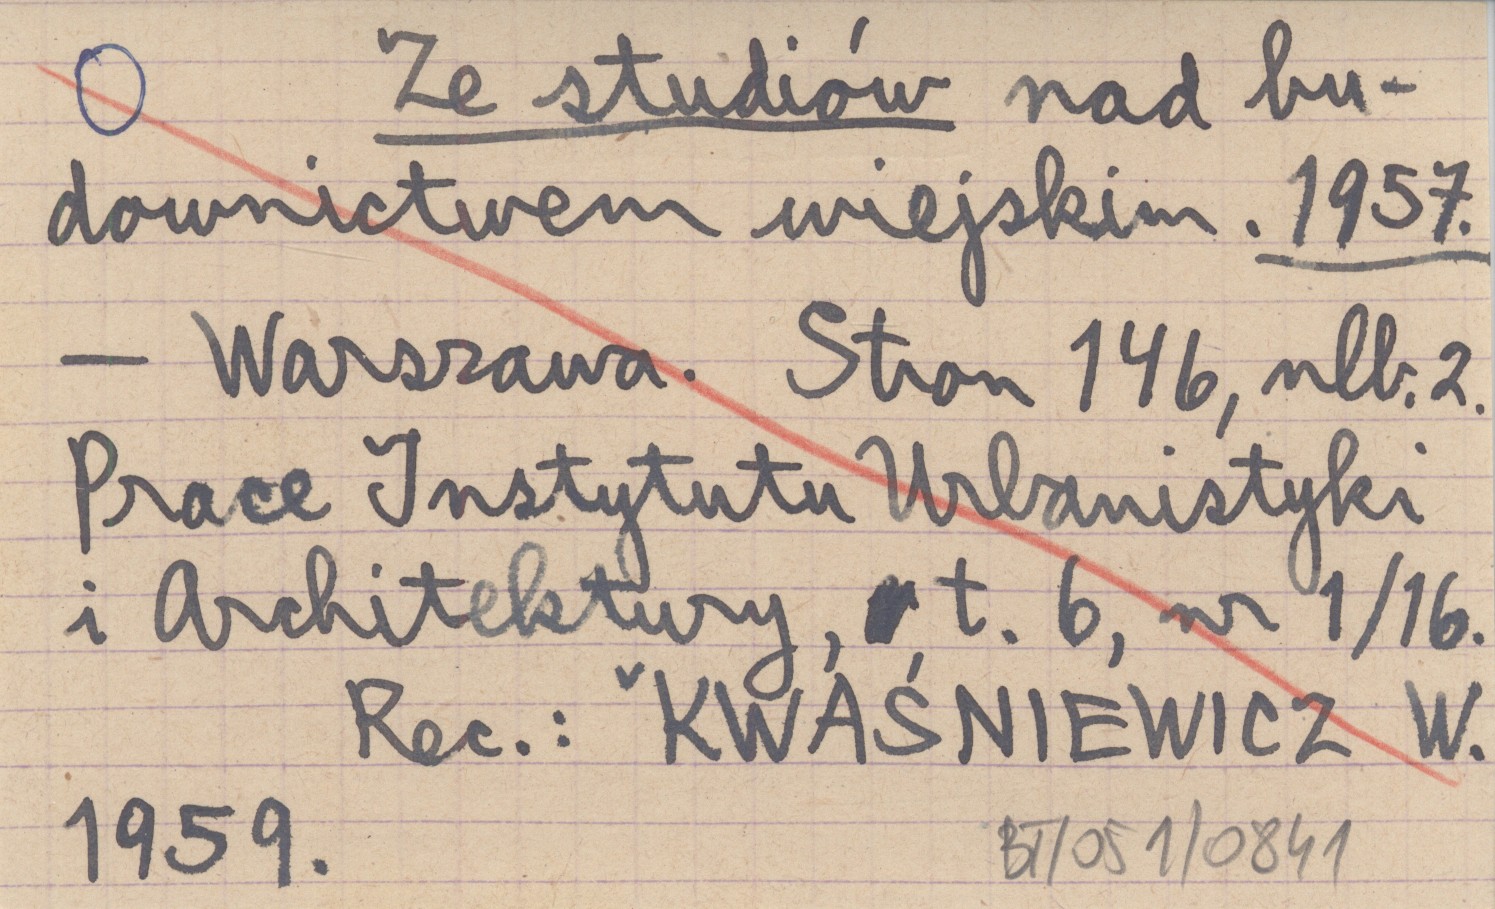 Ze studiów nad bu-
downictwem wiejskim. 1957.
— Warszawa. Stron 146, nlb. 2.
Prace Instytutu Urbanistyki
i Architektury, t. 6, nr 1/16.
Rec.: KWAŚNIEWICZ W.
1959.
BT/051/0841